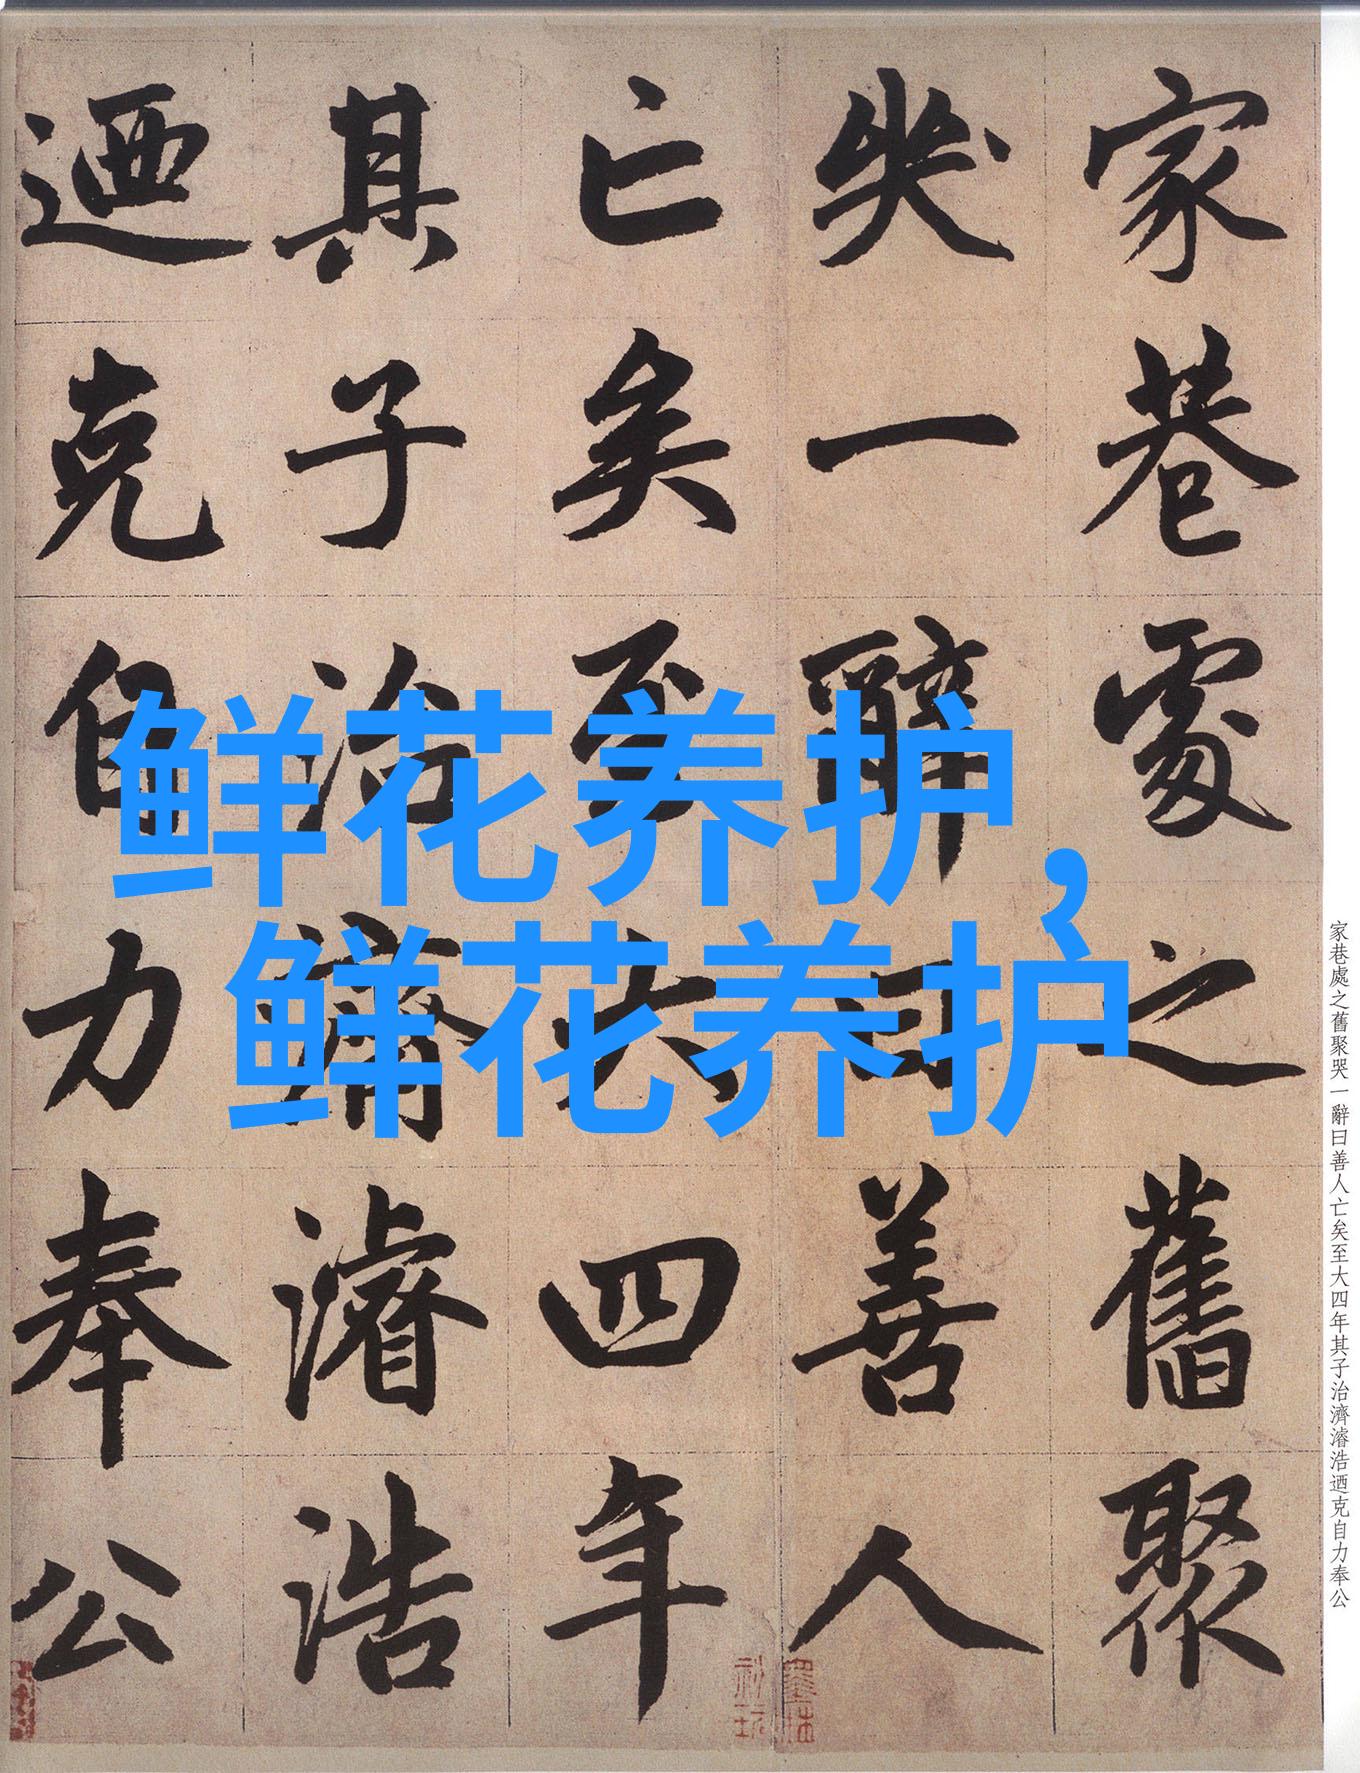 家巷處之舊聚
哭一辭曰善人
亡矣至大四年
其子治濟濬浩
迺克自力奉公
鲜花养护，
鲜花养护
家巷處之舊聚哭一辭曰善人亡矣至大四年其子治濟濬浩迺克自力奉公